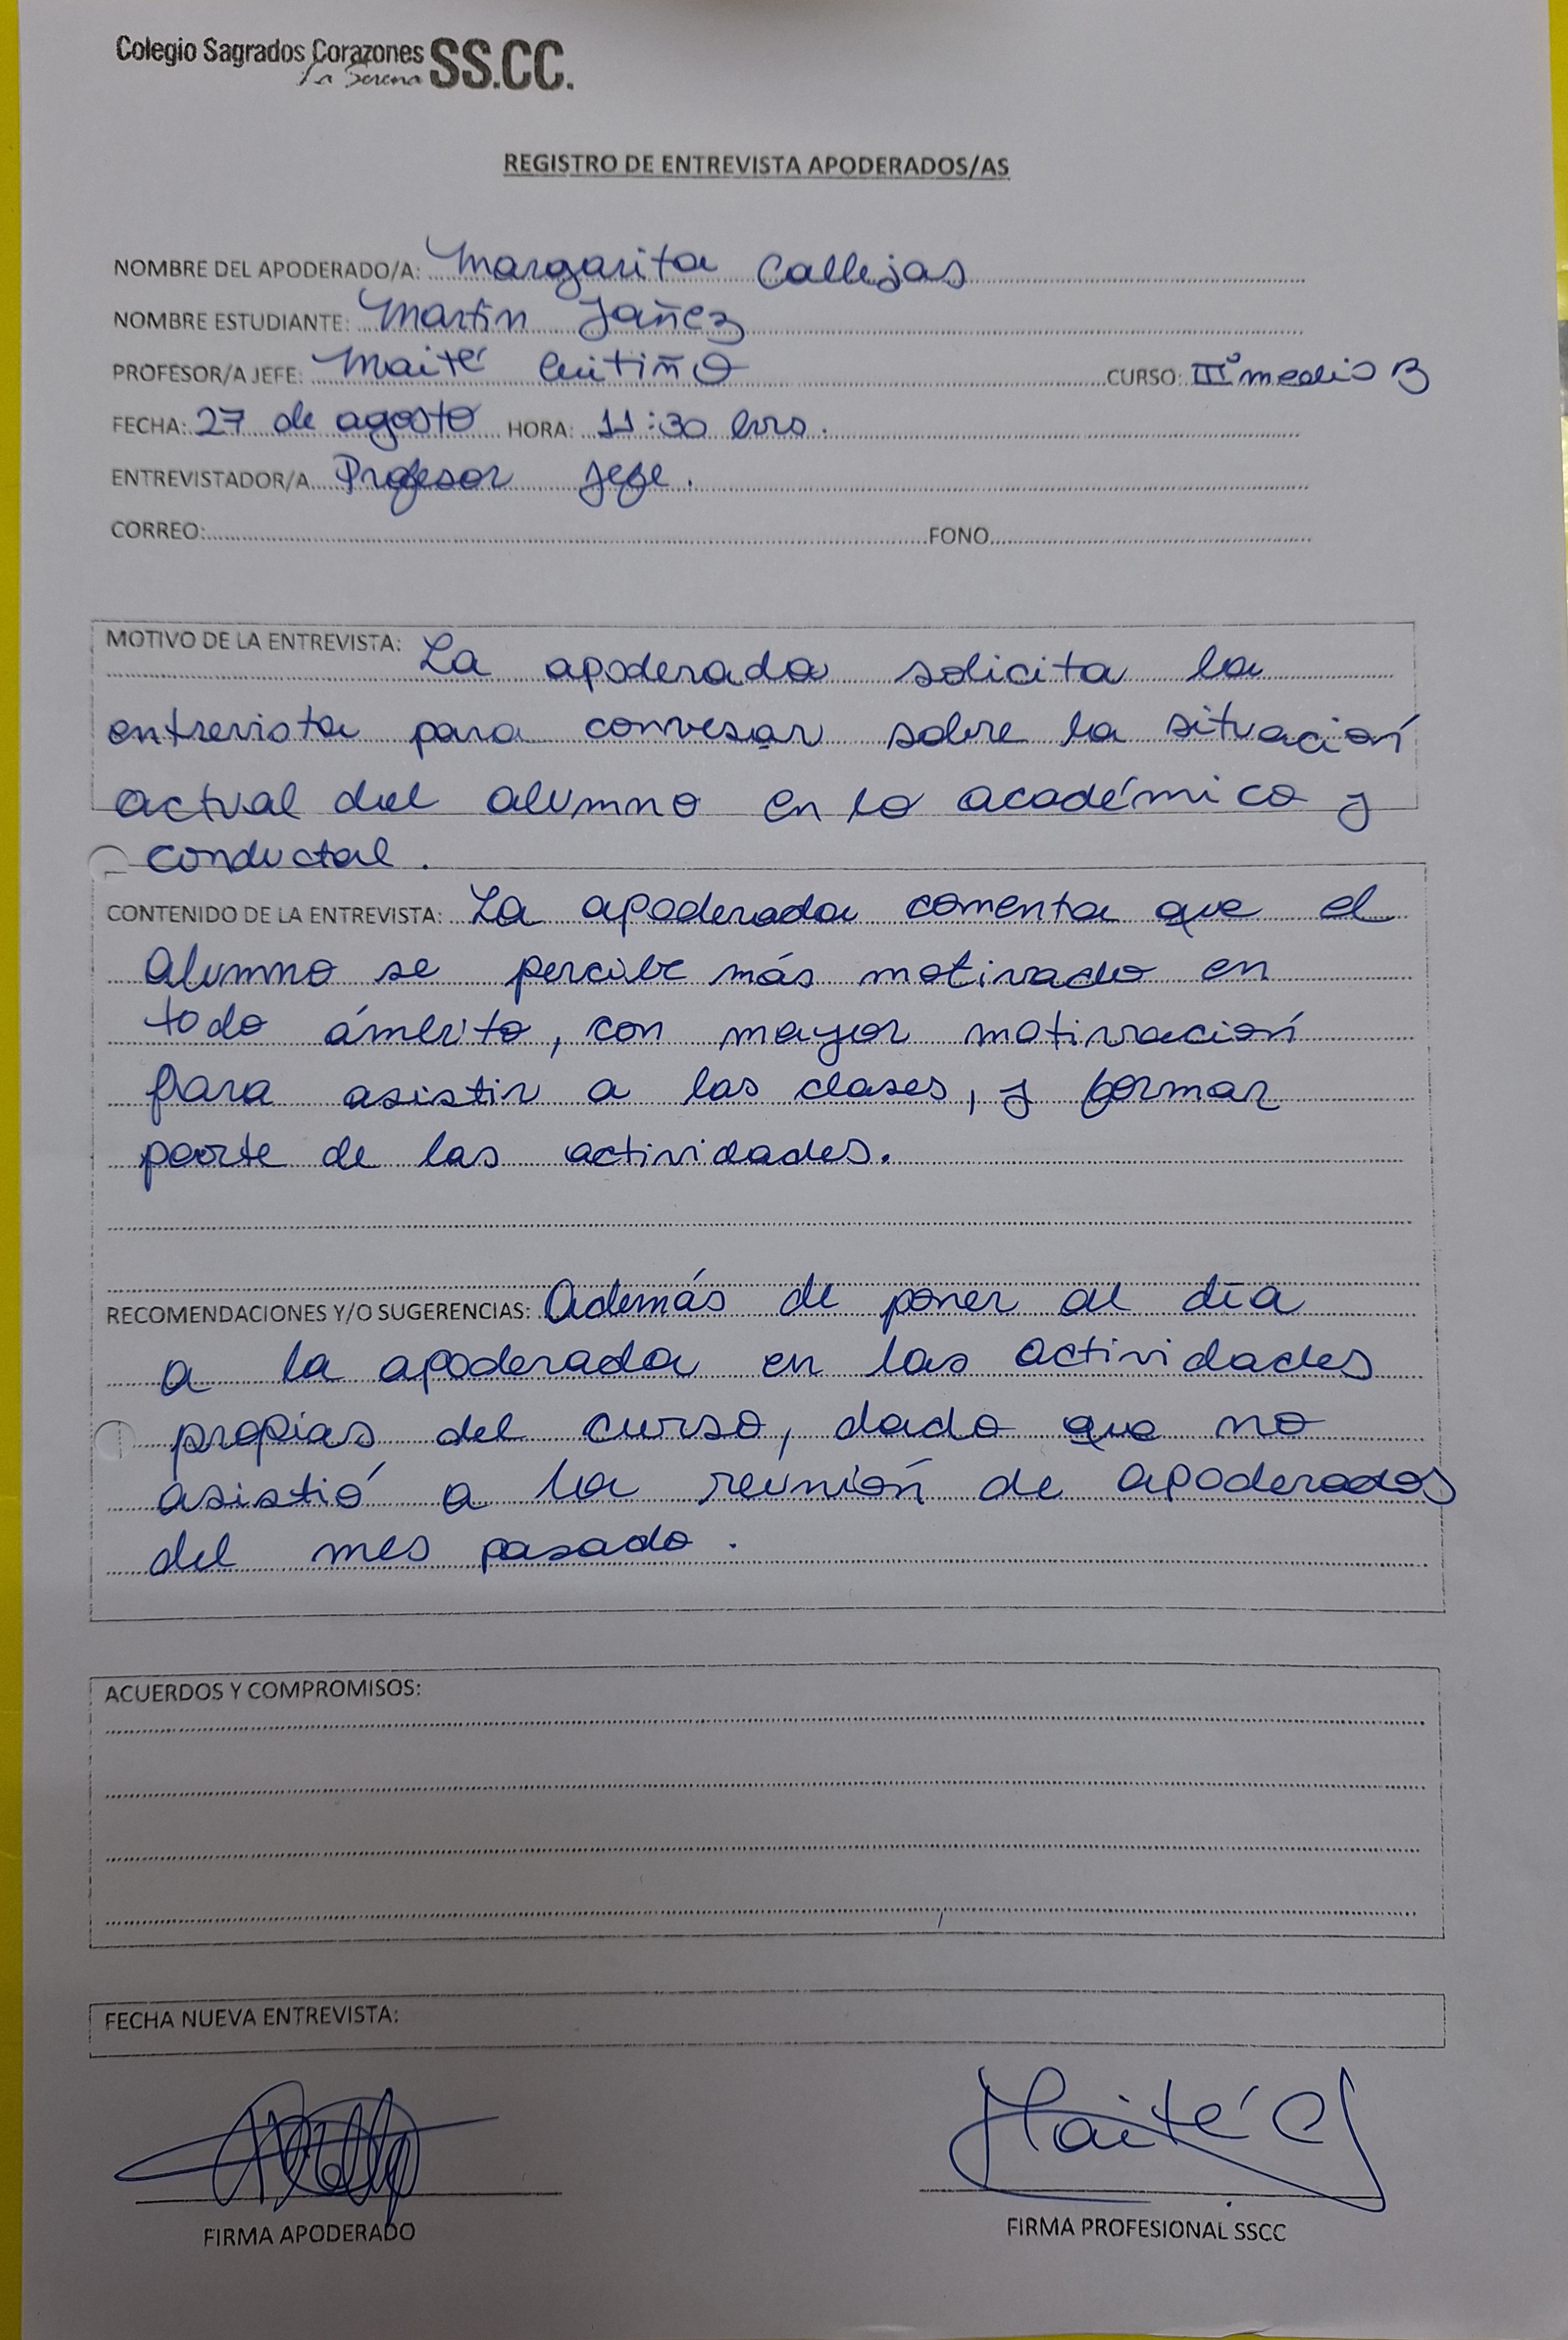 Colegio Sagrados Corazones SS.CC.
La Serena
REGISTRO DE ENTREVISTA APODERADOS/AS
NOMBRE DEL APODERADO/A: Margarita Callejas
NOMBRE ESTUDIANTE: Martín Yañez
PROFESOR/A JEFE: Maité Cutiño CURSO: III° medio B
FECHA: 27 de agosto HORA: 11:30 hrs.
ENTREVISTADOR/A Profesor Jefe.
CORREO: FONO
MOTIVO DE LA ENTREVISTA: La apoderada solicita la
entrevista para convesar sobre la situación
actual del alumno en lo académico y
conductal.
CONTENIDO DE LA ENTREVISTA: La apoderada comenta que el
alumno se percibe más motivado en
todo ámbito, con mayor motivación
para asistir a las clases, y formar
parte de las actividades.
RECOMENDACIONES Y/O SUGERENCIAS: Además de poner al día
a la apoderada en las actividades
propias del curso, dado que no
asistió a la reunión de apoderados
del mes pasado.
ACUERDOS Y COMPROMISOS:
FECHA NUEVA ENTREVISTA:
Maité C
FIRMA APODERADO FIRMA PROFESIONAL SSCC